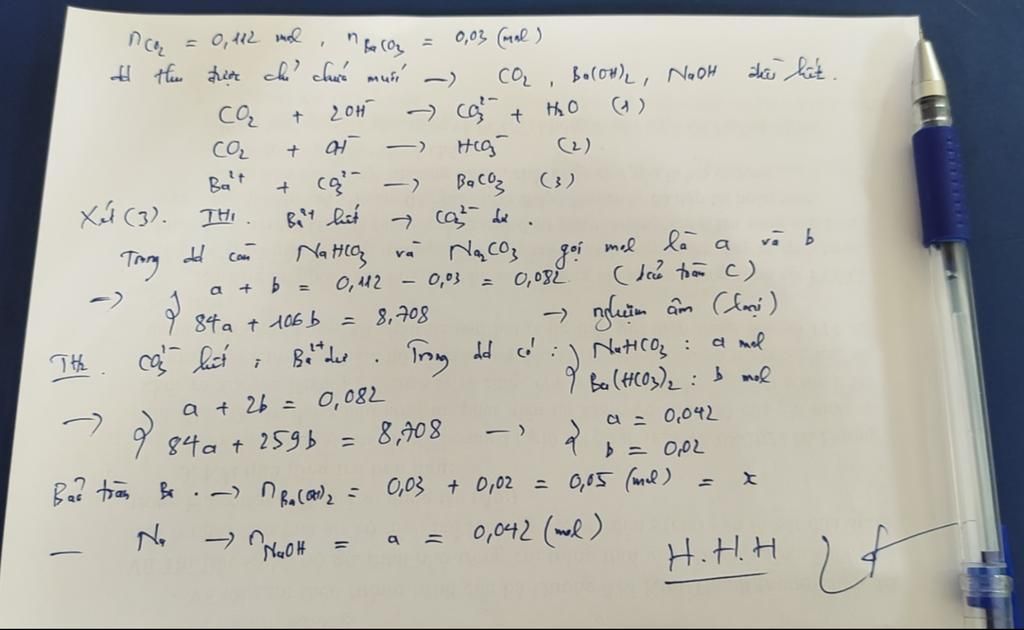 nCO₂ = 0,112 mol , nBaCO₃ = 0,03 (mol)
dd thu được chỉ chứa muối → CO₂ , Ba(OH)₂ , NaOH đều hết.
CO₂ + 2OH⁻ → CO₃²⁻ + H₂O (1)
CO₂ + OH⁻ → HCO₃⁻ (2)
Ba²⁺ + CO₃²⁻ → BaCO₃ (3)
Xét (3). TH1. Ba²⁺ hết → CO₃²⁻ dư.
Trong dd còn NaHCO₃ và Na₂CO₃ gọi mol là a và b
→ { a + b = 0,112 - 0,03 = 0,082 (bảo toàn C)
84a + 106b = 8,708 → nghiệm âm (loại)
TH2. CO₃²⁻ hết ; Ba²⁺ dư . Trong dd có : { NaHCO₃ : a mol
Ba(HCO₃)₂ : b mol
→ { a + 2b = 0,082
84a + 259b = 8,708 → { a = 0,042
b = 0,02
Bảo toàn Ba . → nBa(OH)₂ = 0,03 + 0,02 = 0,05 (mol) = x
— Na → nNaOH = a = 0,042 (mol)
H.H.H